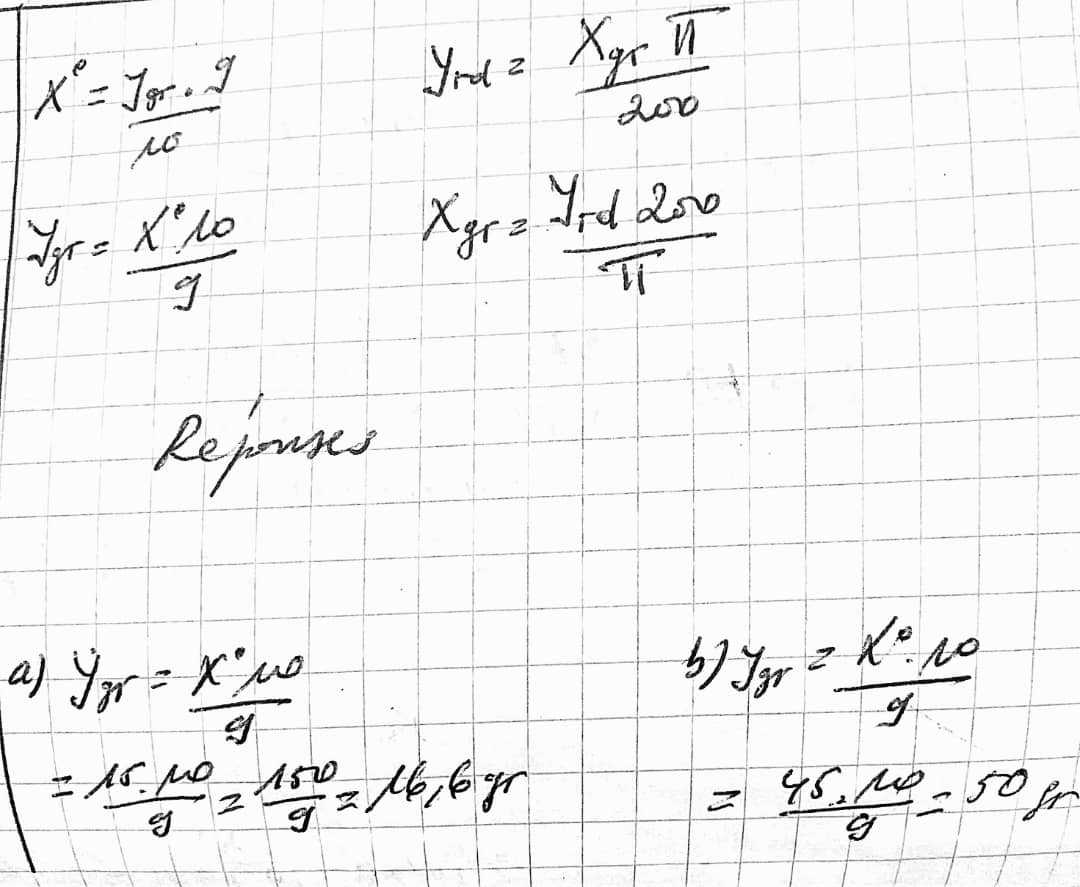 X° = Ygr . 9 / 10
Yrd = Xgr π / 200
Ygr = X° . 10 / 9
Xgr = Yrd 200 / π
Réponses
a) Ygr = X° 10 / 9
= 15 . 10 / 9 = 150 / 9 = 16,6 gr
b) Ygr = X° . 10 / 9
= 45 . 10 / 9 = 50 gr